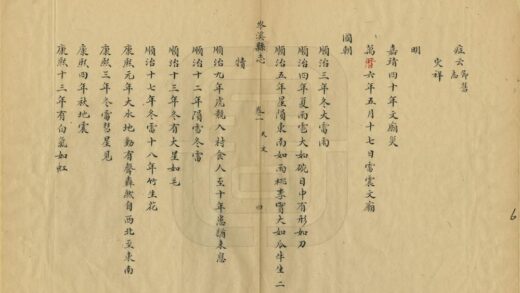 症云
舊
志
災祥
明
嘉靖四十年文廟災
萬曆六年五月十七日雷震文廟
國朝
順治三年冬大雷雨
順治四年夏雨雹大如碗日中有形如刀
順治五年星隕東南如雨桃李實大如瓜牛生二
岑溪縣志 卷一 天文 四
犢
順治九年虎親入村食人至十年患猶未息
順治十二年隕冬雷
順治十三年冬有大星如毛
順治十七年冬雷十八年竹生花
康熙元年大水地動有聲轟然自西北至東南
康熙三年冬雷彗星見
康熙四年秋地震
康熙十三年有白氣如虹
6